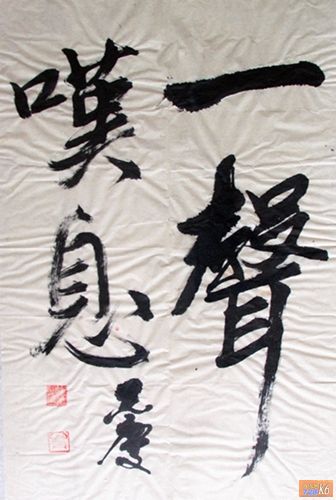 一聲
嘆息